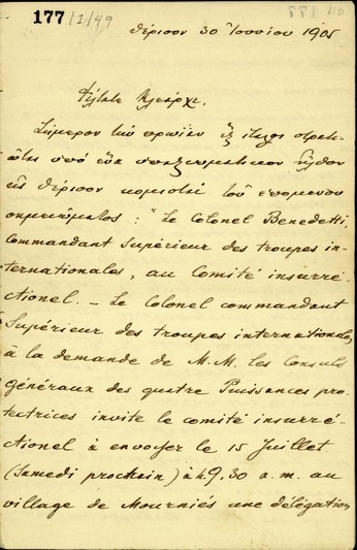 177/1/49
Θέρισον 30 Ἰουνίου 1905
Φίλτατε Κλέαρχε,
Σήμερον τὴν πρωΐαν ἓξ στρατι-
ῶται ὑπὸ ἕνα ὑπαξιωματικὸν ἦλθον
εἰς Θέρισον κομισταὶ τοῦ ἑπομένου
σημειώματος: "Le Colonel Benedetti,
Commandant Supérieur des troupes in-
ternationales, au Comité insurré-
ctionel. – Le Colonel commandant
Supérieur des troupes internationales,
à la demande de M.M. les Consuls
généraux des quatre Puissances pro-
tectrices invite le comité insurré-
ctionel à envoyer le 15 Juillet
(Samedi prochain) à h. 9,30 a.m. au
village de Mourniés une délégation